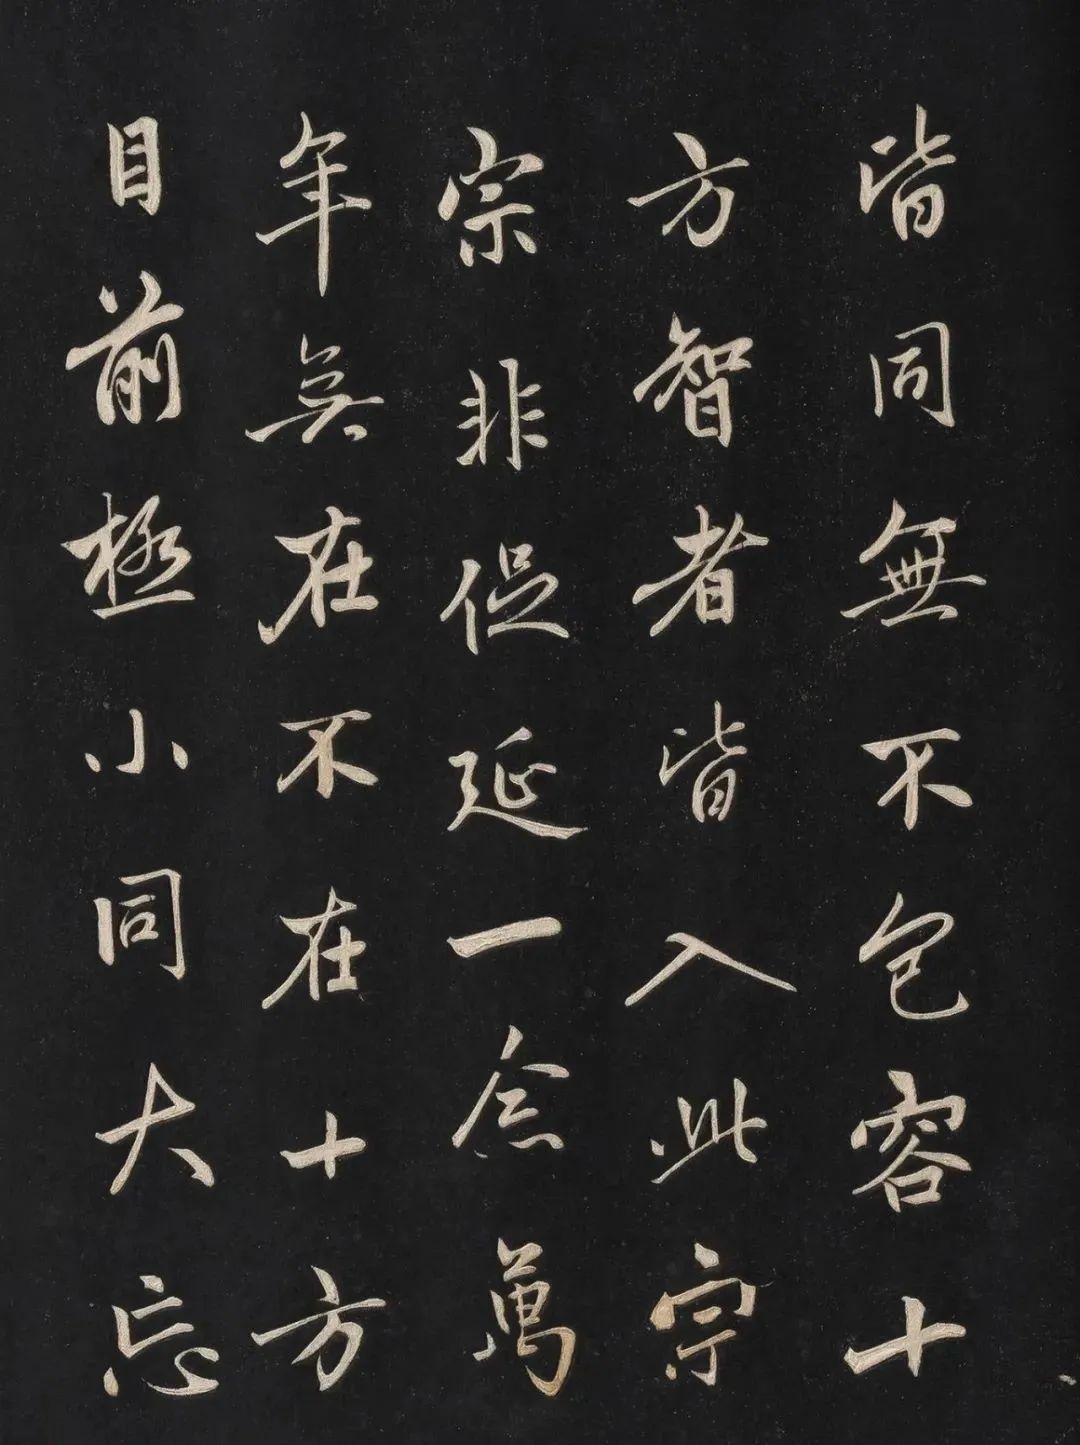 皆同無不包容十
方智者皆入此宗
宗非促延一念萬
年無在不在十方
目前極小同大忘